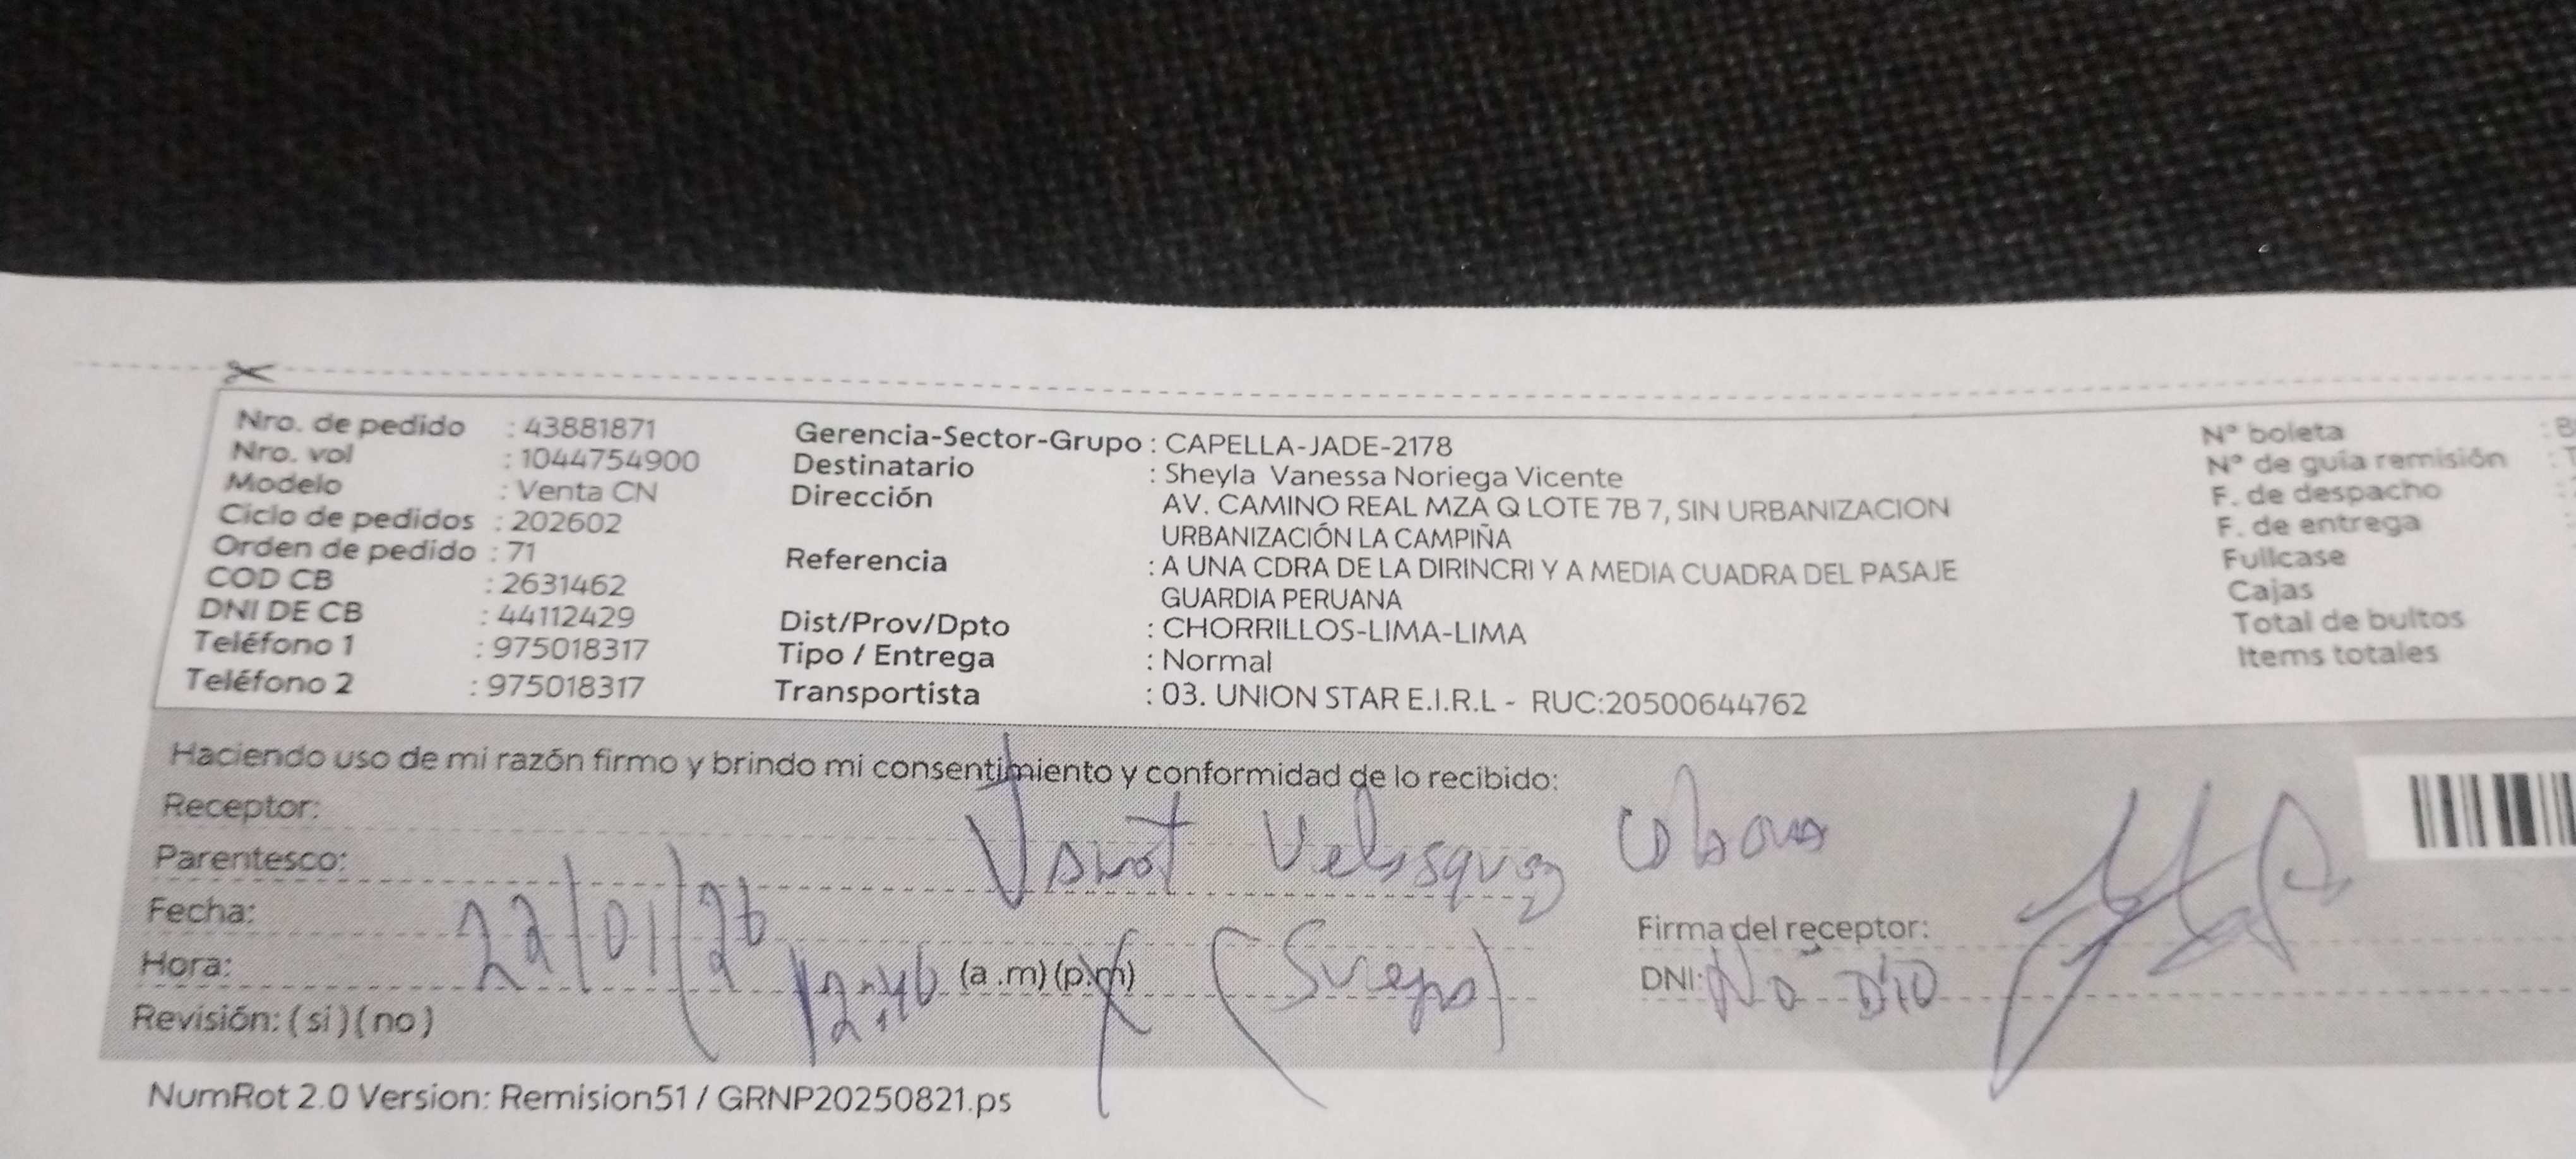 Nro. de pedido : 43881871
Nro. vol : 1044754900
Modelo : Venta CN
Ciclo de pedidos : 202602
Orden de pedido : 71
COD CB : 2631462
DNI DE CB : 44112429
Teléfono 1 : 975018317
Teléfono 2 : 975018317
Gerencia-Sector-Grupo : CAPELLA-JADE-2178
Destinatario : Sheyla Vanessa Noriega Vicente
Dirección AV. CAMINO REAL MZA Q LOTE 7B 7, SIN URBANIZACION
URBANIZACIÓN LA CAMPIÑA
Referencia : A UNA CDRA DE LA DIRINCRI Y A MEDIA CUADRA DEL PASAJE
GUARDIA PERUANA
Dist/Prov/Dpto : CHORRILLOS-LIMA-LIMA
Tipo / Entrega : Normal
Transportista : 03. UNION STAR E.I.R.L - RUC:20500644762
N° boleta
N° de guía remisión
F. de despacho
F. de entrega
Fullcase
Cajas
Total de bultos
Items totales
Haciendo uso de mi razón firmo y brindo mi consentimiento y conformidad de lo recibido:
Receptor:
Parentesco: Velasquez
Fecha: 22/01/26
Hora: 12:46 (a .m) (p.m) (Suegra)
Revisión: ( si ) ( no )
Firma del receptor:
DNI: No Dio
NumRot 2.0 Version: Remision51 / GRNP20250821.ps